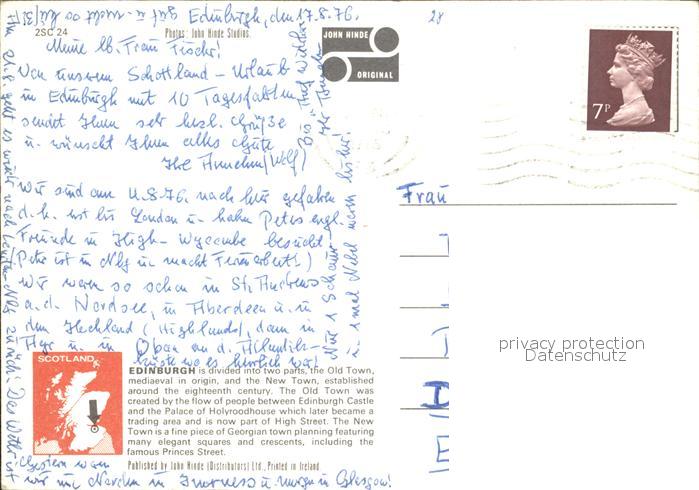 28
Edinburgh, den 17.8.76.
2SC 24
Photos: John Hinde Studios.
JOHN HINDE
ORIGINAL
7P
Meine lb. Frau Fischer!
Von unserem Schottland-Urlaub
in Edinburgh mit 10 Tagesfahrten
sendet Ihnen sehr herzl. Grüße
u. wünscht Ihnen alles Gute
Ihre Annelene (Wolf)
Wir sind am 4.8.76. nach hier gefahren
d.h. erst bis London u. haben Peters engl.
Freunde in High-Wycombe besucht.
(Peter ist in Nbg u. macht Ferienarbeit!)
Wir waren so schon in St. Andrews
a.d. Nordsee, in Aberdeen u. in
dem Hochland (Highlands), dann in
u. in Oban an d. Atlantik-
küste wo es herrlich war!
Frau
privacy protection
Datenschutz
SCOTLAND
EDINBURGH is divided into two parts, the Old Town,
mediaeval in origin, and the New Town, established
around the eighteenth century. The Old Town was
created by the flow of people between Edinburgh Castle
and the Palace of Holyroodhouse which later became a
trading area and is now part of High Street. The New
Town is a fine piece of Georgian town planning featuring
many elegant squares and crescents, including the
famous Princes Street.
Published by John Hinde (Distributors) Ltd., Printed in Ireland
Gestern waren
wir im Norden in Inverness u. morgen in Glasgow!